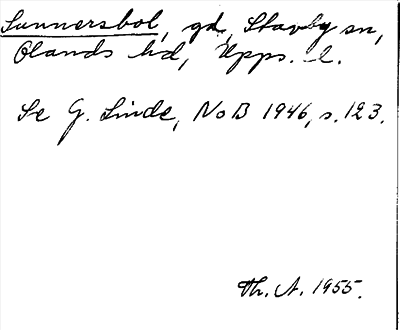 Sunnersbol, gd, Stavby sn,
Olands hd, Upps. l.
Se G. Linde, NoB 1946, s. 123.
Th. A. 1955.